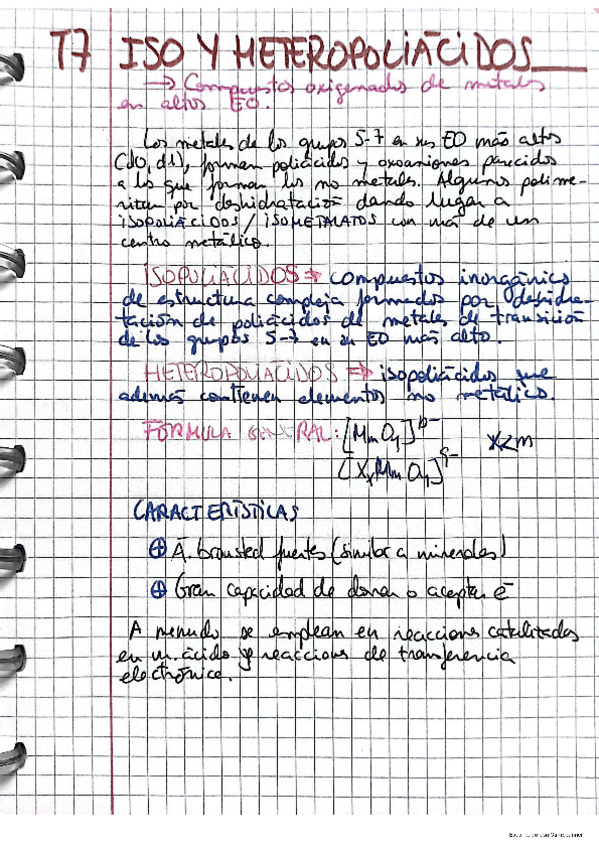 T7 ISO Y HETEROPOLIÁCIDOS
→ Compuestos oxigenados de metales
en altos EO.
Los metales de los grupos 5-7 en sus EO más altos
(d0, d1), forman poliácidos y oxoaniones parecidos
a los que forman los no metales. Algunos polime-
rizan por deshidratación dando lugar a
ISOPOLIÁCIDOS / ISOMETALATOS con más de un
centro metálico.
ISOPOLIACIDOS → compuestos inorgánicos
de estructura compleja formados por deshidra-
tación de poliácidos de metales de transición
de los grupos 5-7 en su EO más alto.
HETEROPOLIÁCIDOS → isopoliácidos que
además contienen elementos no metálico.
FÓRMULA GENERAL: [MmOy]p-
[XxMmOy]q- x<m
CARACTERÍSTICAS
⊕ A. bronsted fuertes (similar a minerales)
⊕ Gran capacidad de donar o aceptar e-
A menudo se emplean en reacciones catalizadas
en m. ácido y reacciones de transferencia
electrónica.